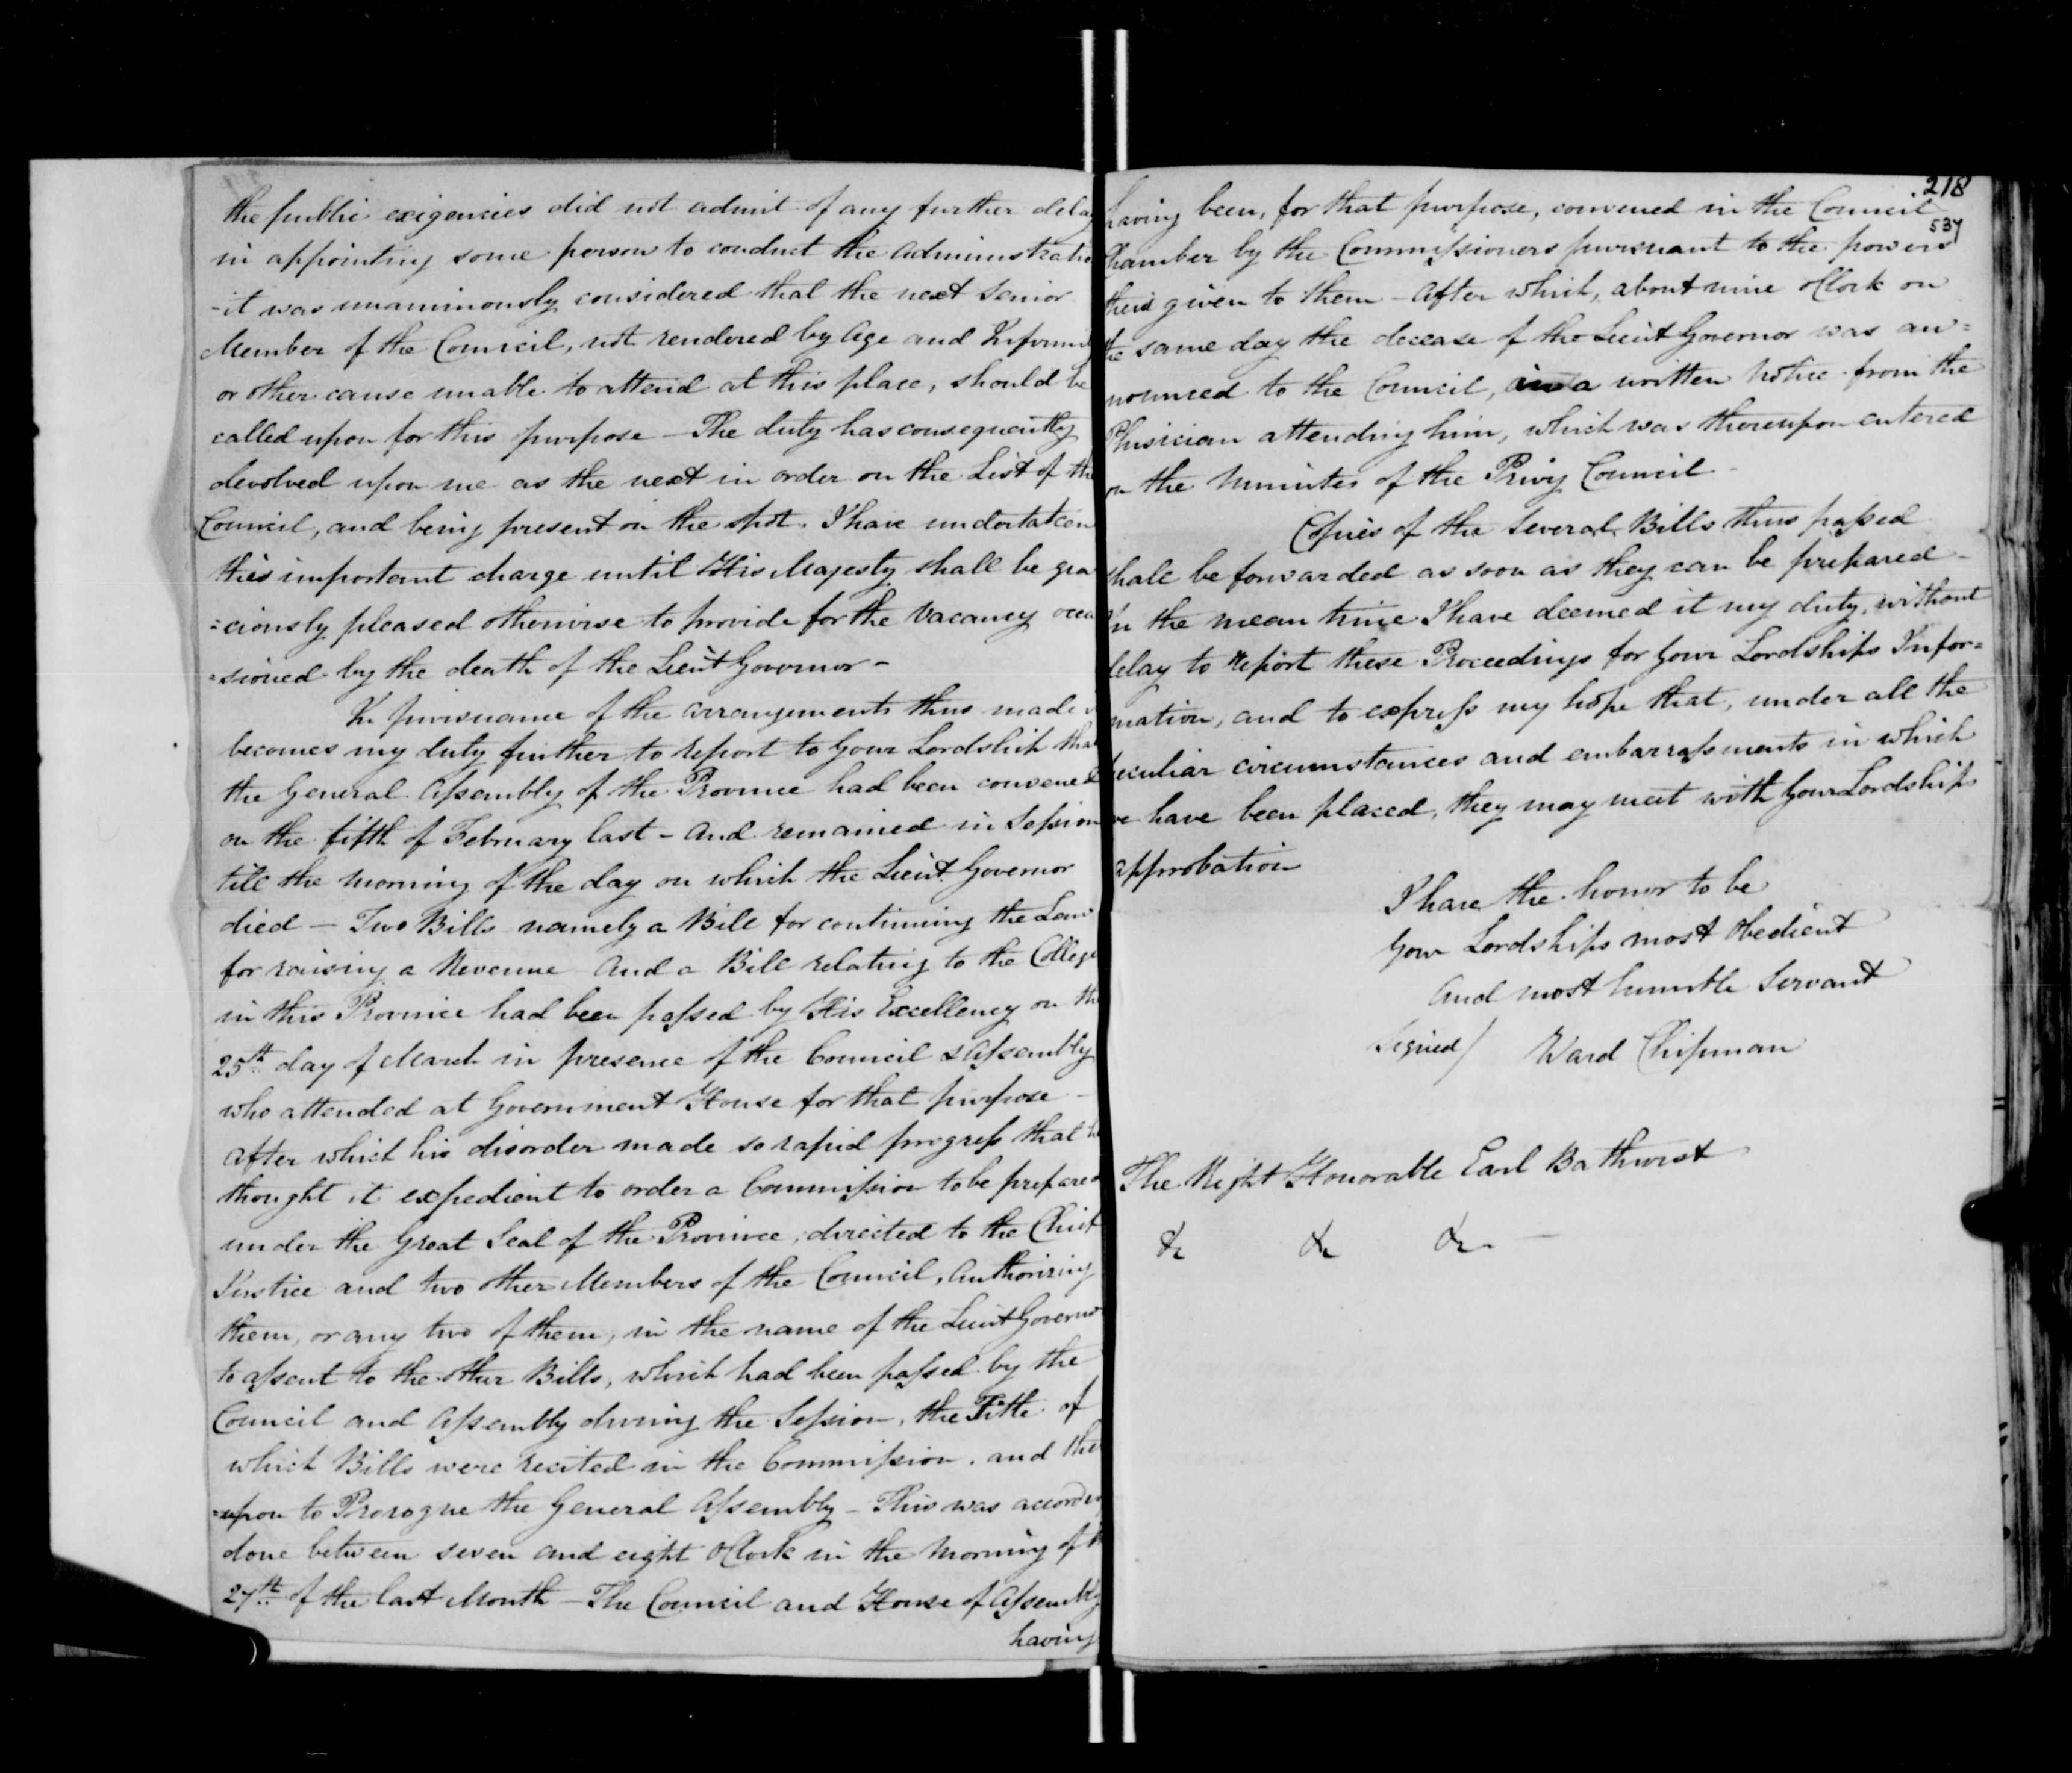 the public exigencies did not admit of any further delay
in appointing some person to conduct the Administratio
- it was unanimously considered that the next Senior
Member of the Council, not rendered by Age and Infirmity
or other cause unable to attend at this place, should be
called upon for this purpose — The duty has consequently
devolved upon me as the next in order on the List of the
Council, and being present on the spot. I have undertaken
this important charge until His Majesty shall be gra
=ciously pleased otherwise to provide for the Vacancy occa
=sioned by the death of the Lieut Governor -
In pursuance of the arrangements thus made
becomes my duty further to report to Your Lordship that
the General Assembly of the Province had been convened
on the fifth of February last - and remained in Session
till the Morning of the day on which the Lieut Governor
died — Two Bills namely a Bill for continuing the Law
for raising a Revenue And a Bill relating to the College
in this Province had been passed by His Excellency on the
25th day of March in presence of the Council & Assembly
who attended at Government House for that purpose -
after which his disorder made so rapid progress that he
thought it expedient to order a Commission to be prepared
under the Great Seal of the Province, directed to the Chief
Justice and two other Members of the Council, Authorizing
them, or any two of them, in the name of the Lieut Governor
to assent to the other Bills, which had been passed by the
Council and Assembly during the Session, the Title of
which Bills were recited in the Commission. and the
=upon to Prorogue the General Assembly - This was according
done between seven and eight oClock in the Morning of
27th of the last Month — The Council and House of Assembly
having
218
537
having been, for that purpose, convened in the Council
Chamber by the Commissioners pursuant to the powers
given to them - After which, about nine oClock on
the same day the decease of the Lieut Governor was an=
nounced to the Council, in a written Notice from the
Phisician attending him, which was thereupon entered
on the Minutes of the Privy Council -
Copies of the Several Bills thus passed
shall be forwarded as soon as they can be prepared -
In the mean time I have deemed it my duty, without
delay to Report these Proceedings for Your Lordships Infor=
mation, and to express my hope that, under all the
peculiar circumstances and embarrassments in which
we have been placed, they may meet with Your Lordships
approbation
I have the honor to be
Your Lordships most Obedient
And most humble Servant
Signed/ Ward Chipman
The Right Honorable Earl Bathurst
&c &c &c —